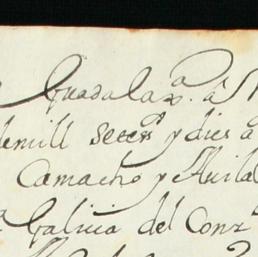 Guadalaxª. á
demill Setecs y dies a
Camacho y Avila
Galicia del Conz